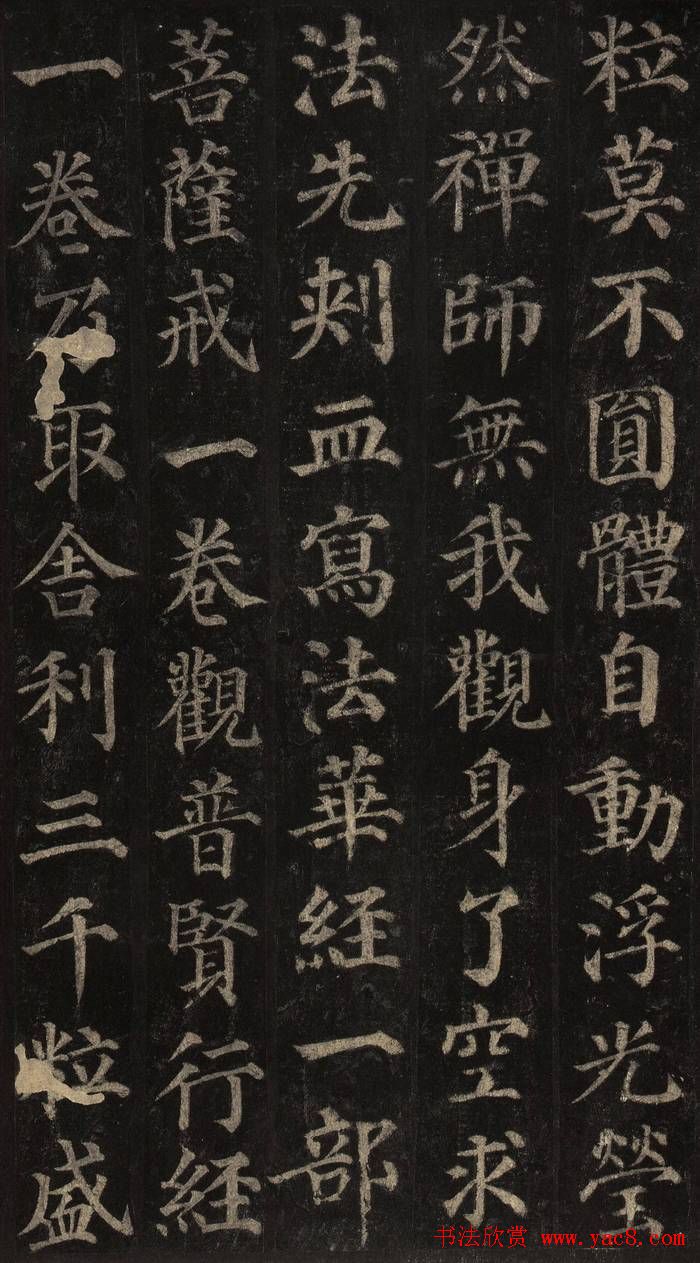 粒莫不圎體自動浮光瑩
然禪師無我觀身了空求
法先刾血寫法華経一部
菩薩戒一卷觀普賢行経
一卷乃取舍利三千粒盛
书法欣赏 www.yac8.com